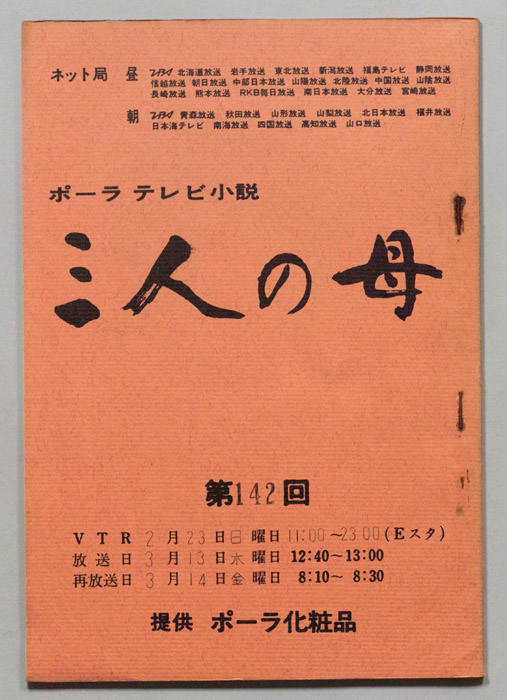 ネット局 昼 TBS 北海道放送 岩手放送 東北放送 新潟放送 福島テレビ 静岡放送
信越放送 朝日放送 中部日本放送 山陽放送 北陸放送 中国放送 山陰放送
長崎放送 熊本放送 RKB毎日放送 南日本放送 大分放送 宮崎放送
朝 TBS 青森放送 秋田放送 山形放送 山梨放送 北日本放送 福井放送
日本海テレビ 南海放送 四国放送 高知放送 山口放送
ポーラ テレビ小説
三人の母
第142回
VTR 2月23日日曜日 11:00~23:00(Eスタ)
放送日 3月13日木曜日 12:40~13:00
再放送日 3月14日金曜日 8:10~ 8:30
提供 ポーラ化粧品